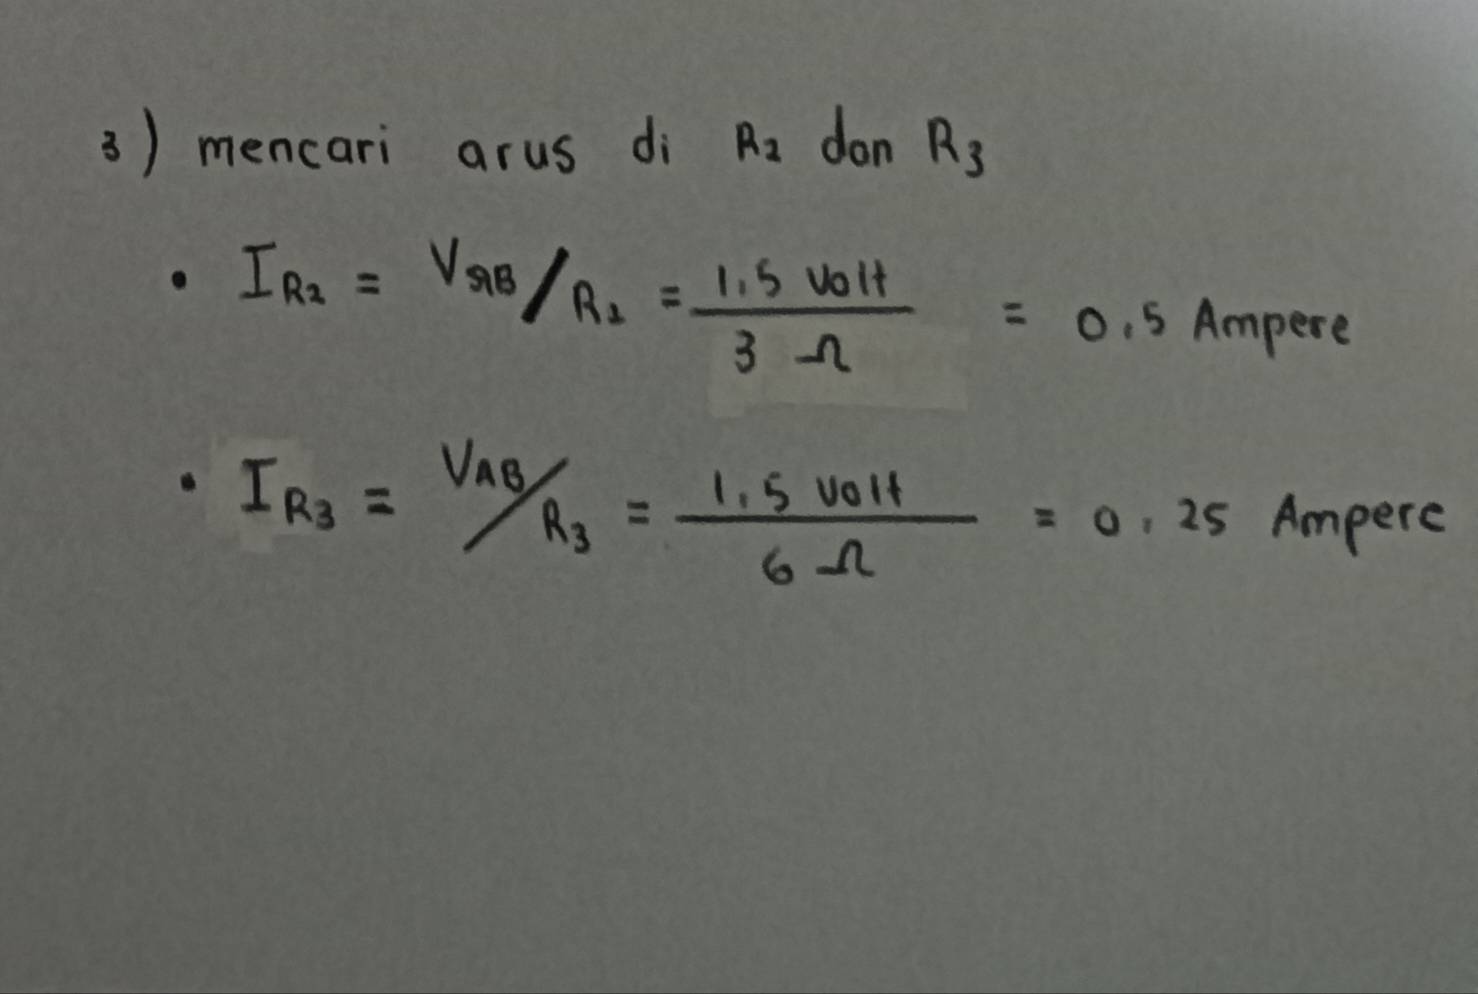 3) mencari arus di R2 dan R3
• IR2 = VAB/R2 = 1,5 Volt / 3 Ω = 0,5 Ampere
• IR3 = VAB/R3 = 1,5 Volt / 6 Ω = 0,25 Ampere